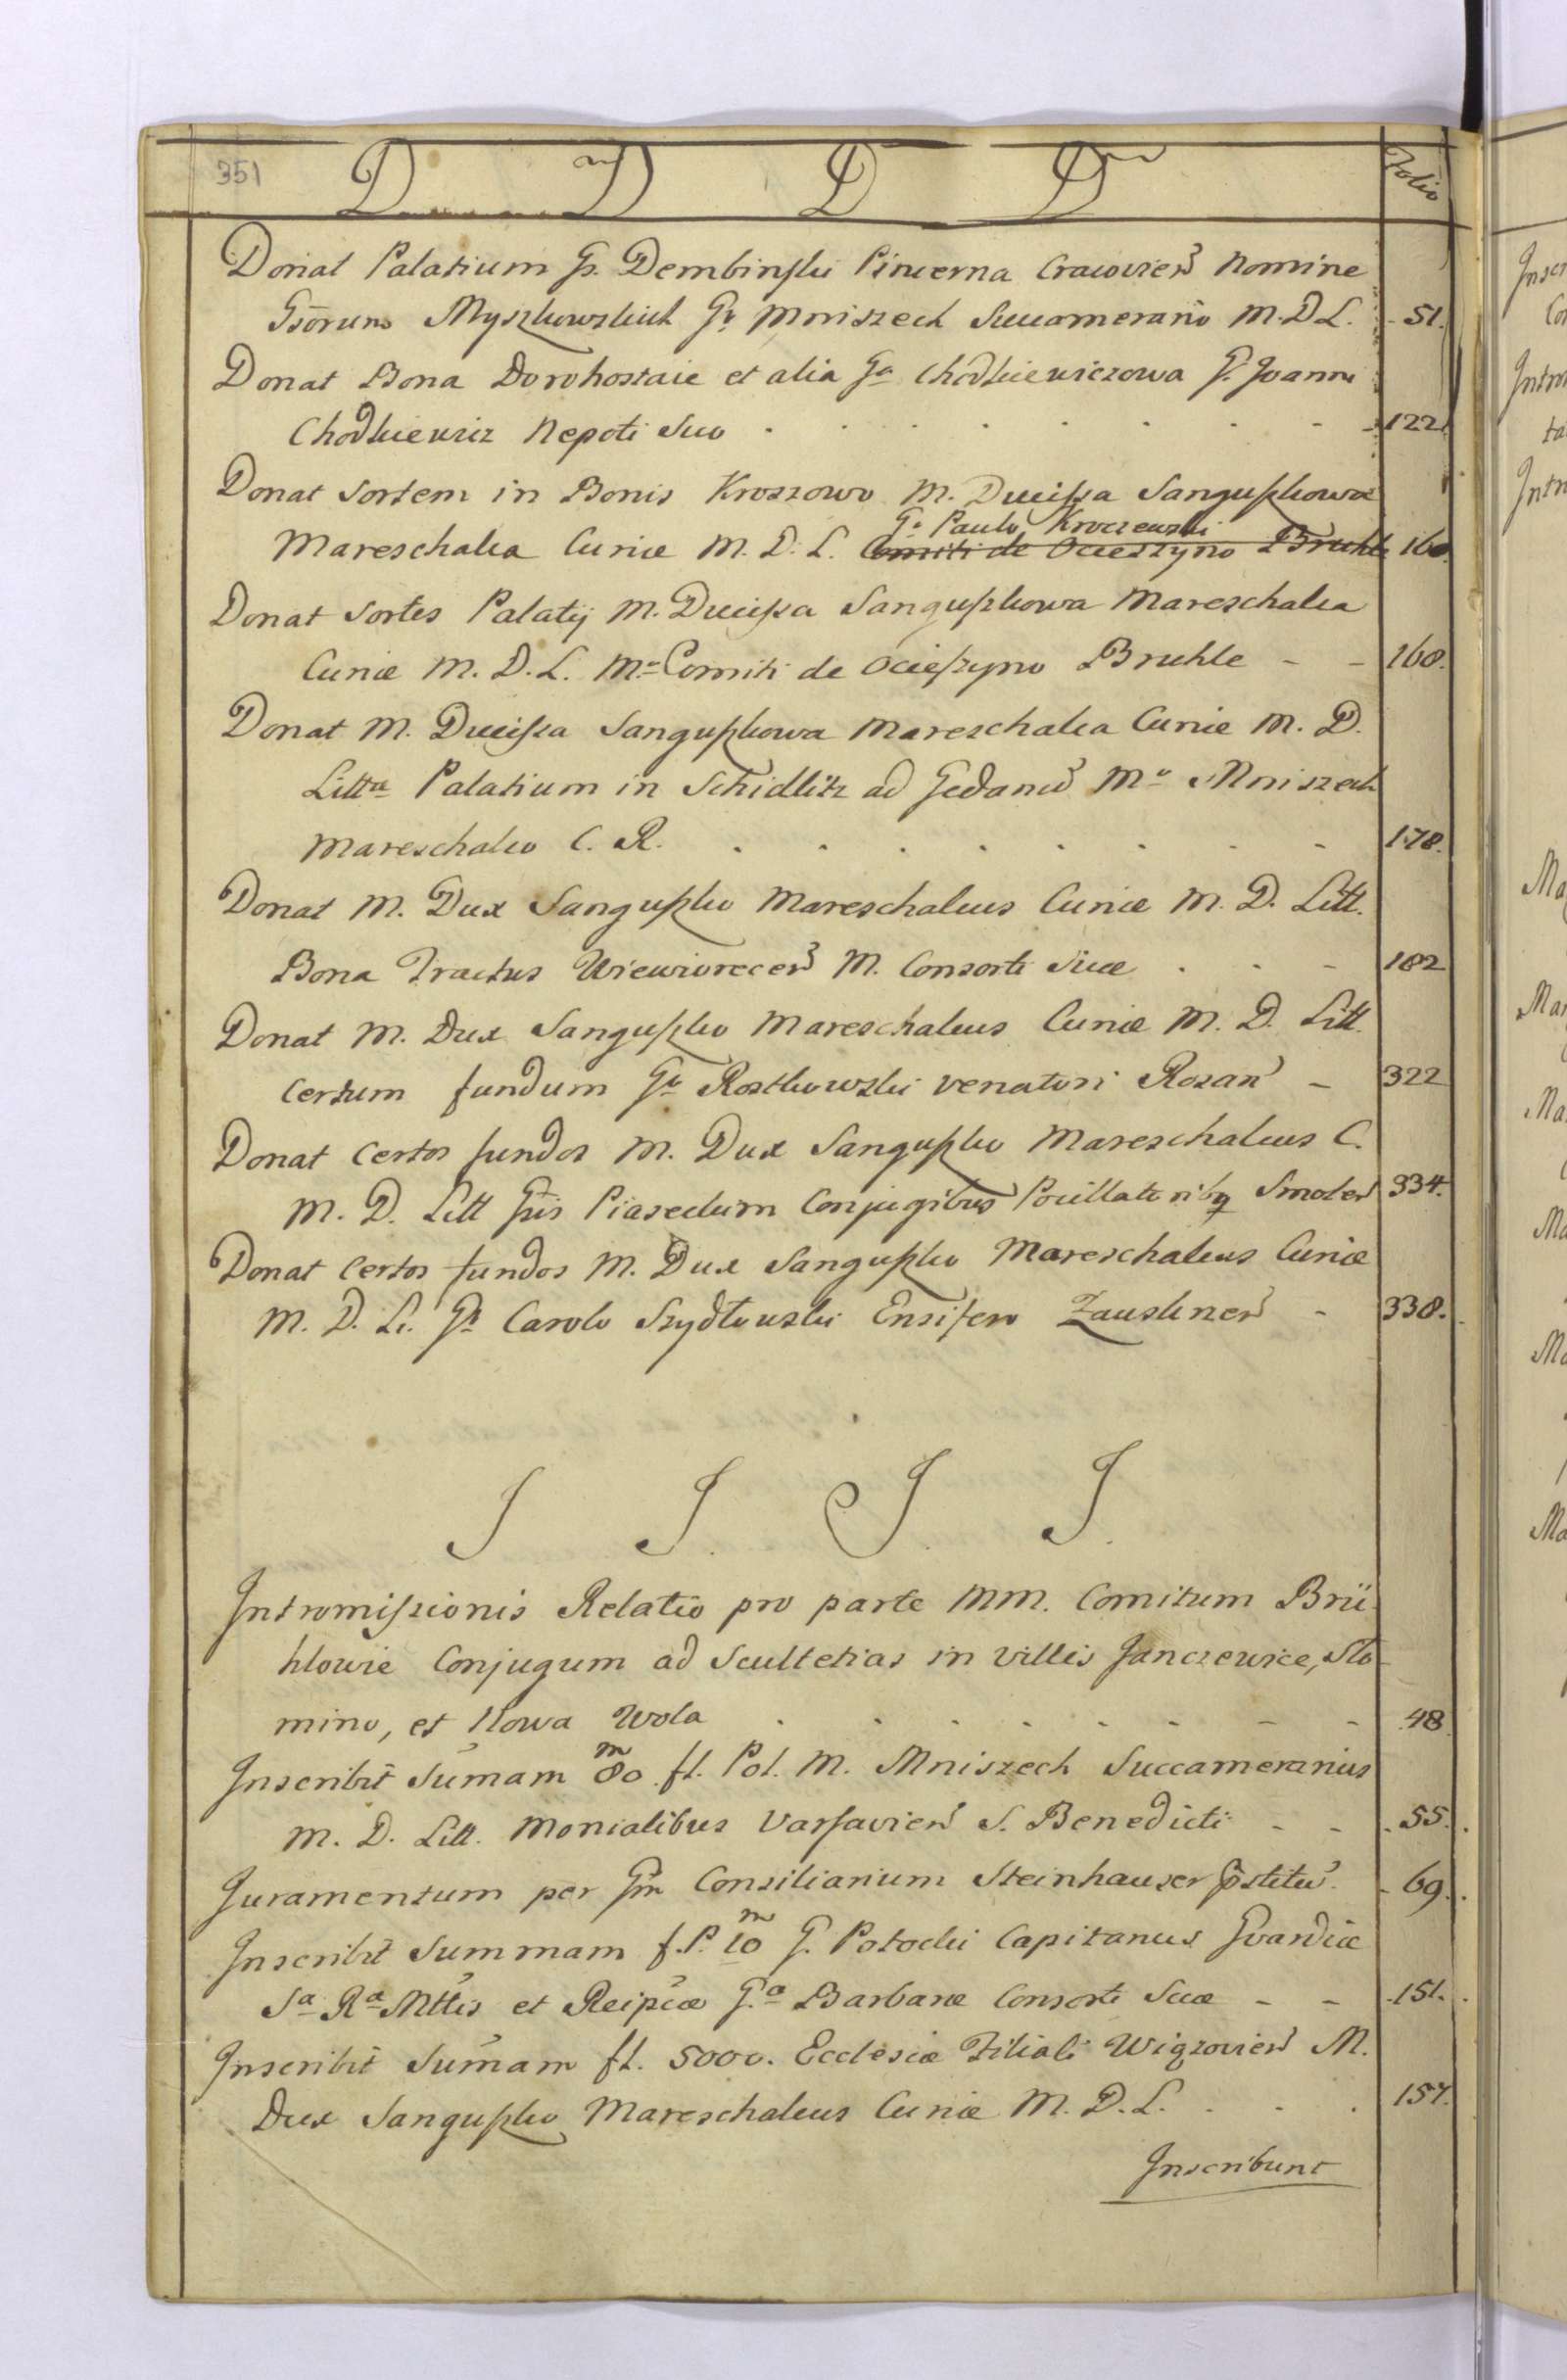 351 D D D D Folio
Donat Palatium G. Dembinski Pincerna Cracovien Nomine
Gsorum Myszkowskich Go Mniszech Succamerario M.D.L. 51.
Donat Bona Dorohostaie et alia Ga Chodkiewiczowa G. Joanni
Chodkiewicz Nepoti Suo 122.
Donat Sortem in Bonis Kroszowo M. Ducissa Sanguszkowa
Go Paulo Kroczewski
Mareschalca Curiæ M. D. L. Comiti de Ocieszyno Bruhle 160.
Donat Sortes Palatij M. Ducissa Sanguszkowa Mareschalca
Curiæ M. D. L. Mo Comiti de Ocieszyno Bruhle - - 160.
Donat M. Ducissa Sanguszkowa Mareschalca Curiæ M. D.
Litta Palatium in Schidlitz ad Gedanu Mo Mniszech
Mareschalco C. R. 178.
Donat M. Dux Sanguszko Mareschalcus Curiæ M. D. Litt.
Bona Tractus Wiewiorecen M. Consorti Suæ 182
Donat M. Dux Sanguszko Mareschalcus Curiæ M. D. Litt.
certum fundum Go Rostkowski venatori Rozan - 322
Donat certos fundos M. Dux Sanguszko Mareschalcus C.
M. D. Litt Gsis Piaseckim Conjugibus Pocillatoribq Smolen 334.
Donat certos fundos M. Dux Sanguszko Mareschalcus Curiæ
M. D. Li. Go Carolo Szydłowski Ensifero Zauskrzen - 338.
J J. J. J.
Intromissionis Relatio pro parte MM. Comitum Brü
hlowie Conjugum ad Scultetias in villis Janczewice, Sło
mino, et Nowa Wola 48
Inscribit Sumam 80 m fl. Pol. M. Mniszech Succamerarius
M. D. Litt. Monialibus Varsavien S. Benedicti - - 55.
Juramentum per Gm Consiliarium Steinhauser pstitu. 69.
Inscribit Summam f.P. 10 m G. Potocki Capitaneus Gvardiæ
Sa Ra Mttis et Reipcæ G.a Barbaræ Consorti Suæ - - 151.
Inscribit Sumam fl. 5000. Ecclesiæ Filiali Wiązovien M.
Dux Sanguszko Mareschalcus Curiæ M. D. L. 157.
Inscribunt